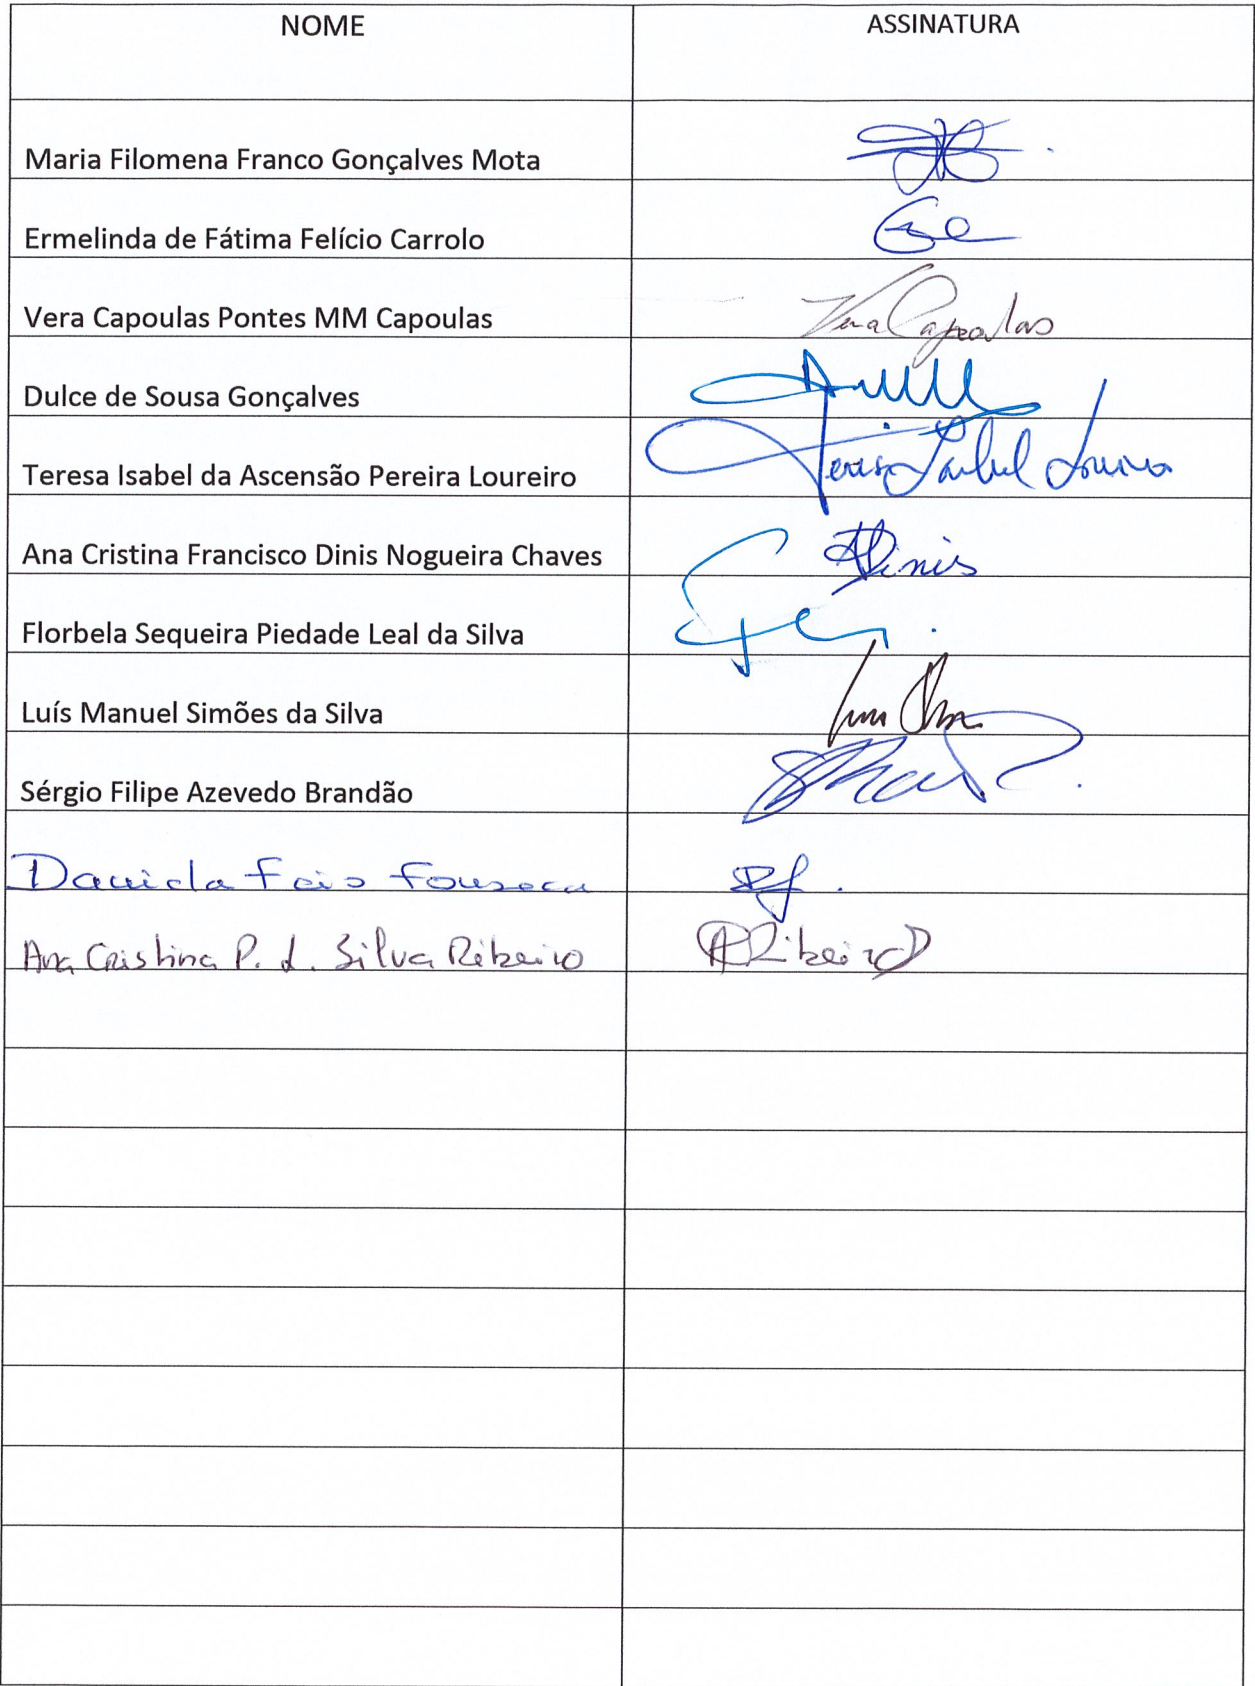 NOME ASSINATURA
Maria Filomena Franco Gonçalves Mota
Ermelinda de Fátima Felício Carrolo
Vera Capoulas Pontes MM Capoulas Vera Capoulas
Dulce de Sousa Gonçalves
Teresa Isabel da Ascensão Pereira Loureiro Teresa Isabel Loureiro
Ana Cristina Francisco Dinis Nogueira Chaves ADinis
Florbela Sequeira Piedade Leal da Silva
Luís Manuel Simões da Silva
Sérgio Filipe Azevedo Brandão
Daniela Fonseca
Ana Cristina P. L. Silva Ribeiro ACRibeiro